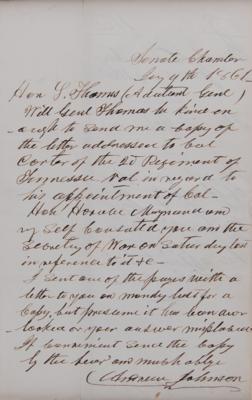 Senate Chamber
1861
Hon L. Thomas (Adutant Genl)
Will Genl Thomas be kind en
ough to send me a copy of
the letter addressed to Col
Carter of the 2d Regiment of
Tennessee Vol in regard to
his appointment of Col-
Hon Horace Maynard and
my Self Consulted you and the
Secretary of War on Saturday last
in reference to it &c-
I sent one of the pages with a
letter to you on monday last for a
Copy, but presume it has been over
looked or your answer misplaced
If convenient send the Copy
by the bearer and much oblige
Andrew Johnson